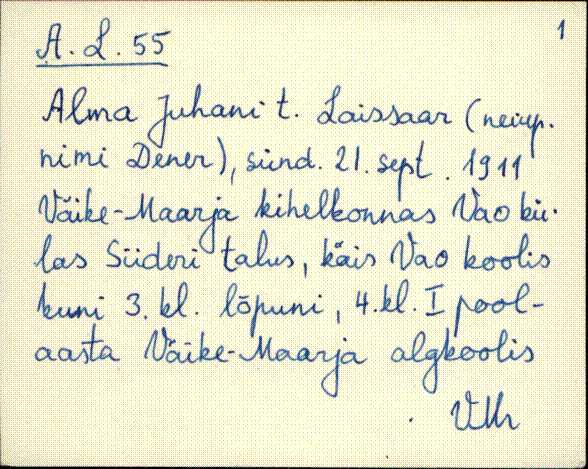 1
A. L. 55
Alma Juhani t. Laissaar (neiup.
nimi Dener), sünd. 21. sept. 1911
Väike-Maarja kihelkonnas Vao kü-
las Siideri talus, käis Vao koolis
kuni 3. kl. lõpuni, 4. kl. I pool-
aasta Väike-Maarja algkoolis